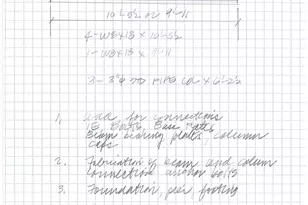 10'-5½ or 9'-11
4-W8x18 x 10'-5½
1-W8x18 x 9'-11
3 - 3"φ STD PIPE COL x 6'-2½
1. and for connections
IE. Bolts, Base Plates
Beam bearing plate, column
caps
2. Fabrication of beam and column
connection anchor bolts
3. Foundation, pier footing